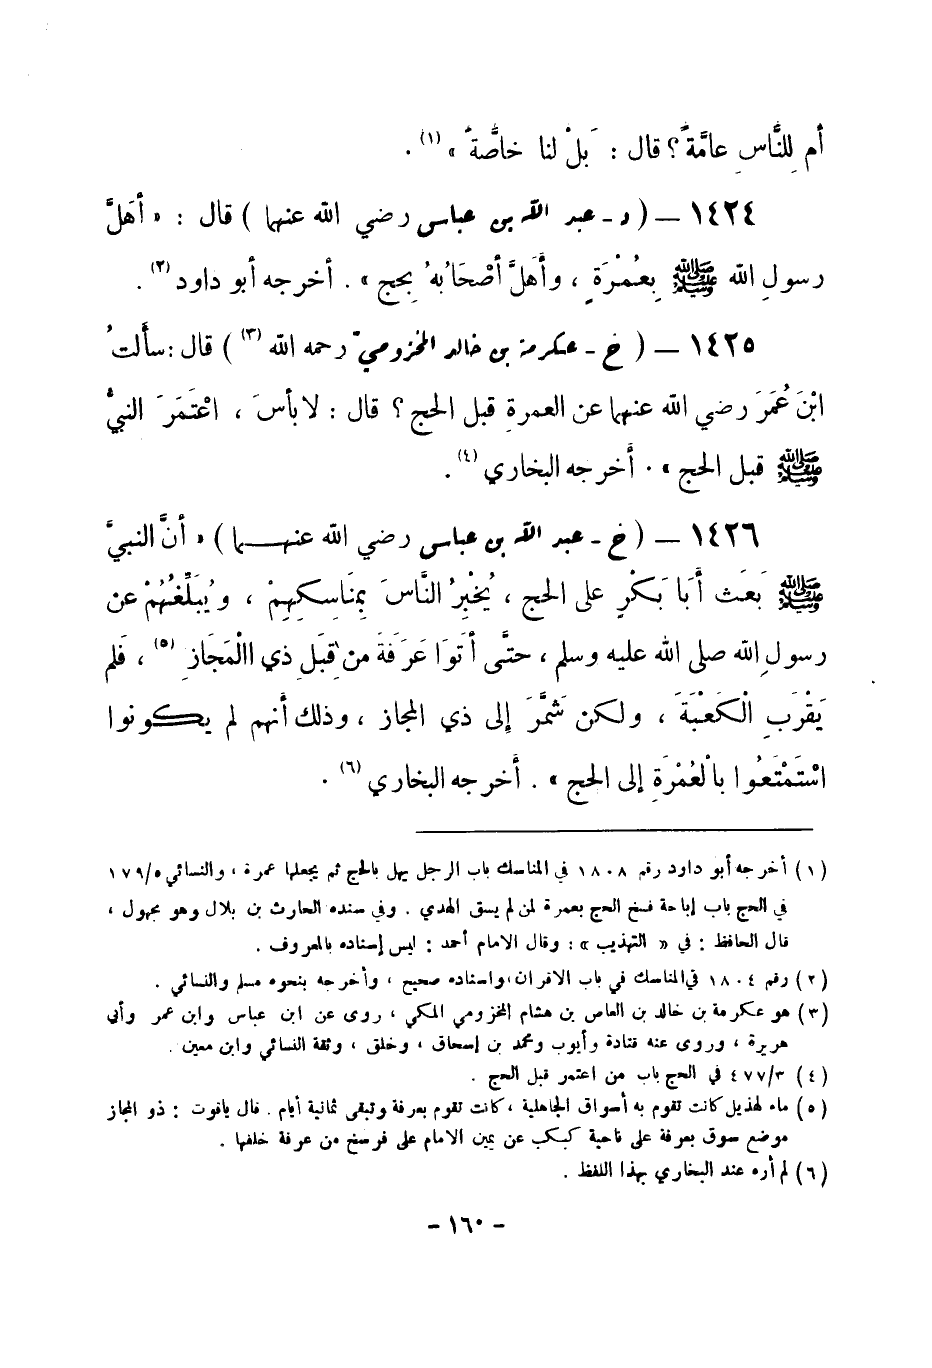 أم لِلنَّاسِ عامَّةً؟ قال : بَلْ لنا خاصَّةً » (١) .
١٤٢٤ — ( د - عبد الله بن عباس رضي الله عنهما ) قال : « أهَلَّ
رسولِ الله ﷺ بِعُمْرَةٍ ، وأهَلَّ أصْحَابُهُ بِحج » . أخرجه أبو داود (٢) .
١٤٢٥ — ( خ - عكرمة بن خالد المخزوميّ رحمه الله (٣) ) قال : سألتُ
ابْنَ عُمَرَ رضي الله عنهما عن العمرةِ قبل الحج ؟ قال : لا بأسَ ، اعْتَمَرَ النبيُّ
ﷺ قبل الحج » . أخرجه البخاري (٤) .
١٤٢٦ — ( خ - عبد الله بن عباس رضي الله عنهــما ) « أنَّ النبيَّ
ﷺ بَعَث أَبَا بَكْرٍ على الحج ، يُخْبِرُ النَّاسَ بِمَنَاسِكِهِمْ ، ويُبَلِّغُهُمْ عن
رسولِ الله صلى الله عليه وسلم ، حتَّى أتَوَا عَرَفَةَ من قِبَلِ ذي االْمَجَازِ (٥) ، فَلم
يَقْرَبِ الْكَعْبَةَ ، ولكن شَمَّرَ إلى ذي المجاز ، وذلك أنهم لم يكونوا
اسْتَمْتَعُوا بالْعُمْرَةِ إلى الحج » . أخرجه البخاري (٦) .
(١) أخرجه أبو داود رقم ١٨٠٨ في المناسك باب الرجل يهل بالحج ثم يجعلها عمرة ، والنسائي ١٧٩/٥
في الحج باب إباحة فسخ الحج بعمرة لمن لم يسق الهدي . وفي سنده الحارث بن بلال وهو مجهول ،
قال الحافظ : في « التهذيب » : وقال الامام أحمد : ليس إسناده بالمعروف .
(٢) رقم ١٨٠٤ في المناسك في باب الاقران ، واسناده صحيح ، وأخرجه بنحوه مسلم والنسائي .
(٣) هو عكرمة بن خالد بن العاص بن هشام المخزومي المكي ، روى عن ابن عباس وابن عمر وأبي
هريرة ، وروى عنه قتادة وأيوب ومحمد بن إسحاق ، وخلق ، وثقة النسائي وابن معين .
(٤) ٤٧٧/٣ في الحج باب من اعتمر قبل الحج .
(٥) ماء لهذيل كانت تقوم به أسواق الجاهلية ، كانت تقوم بعرفة وتبقى ثمانية أيام . قال ياقوت : ذو المجاز
موضع سوق بعرفة على ناحية كبكب عن يمين الامام على فرسخ من عرفة خلفها .
(٦) لم أره عند البخاري بهذا اللفظ .
- ١٦٠ -